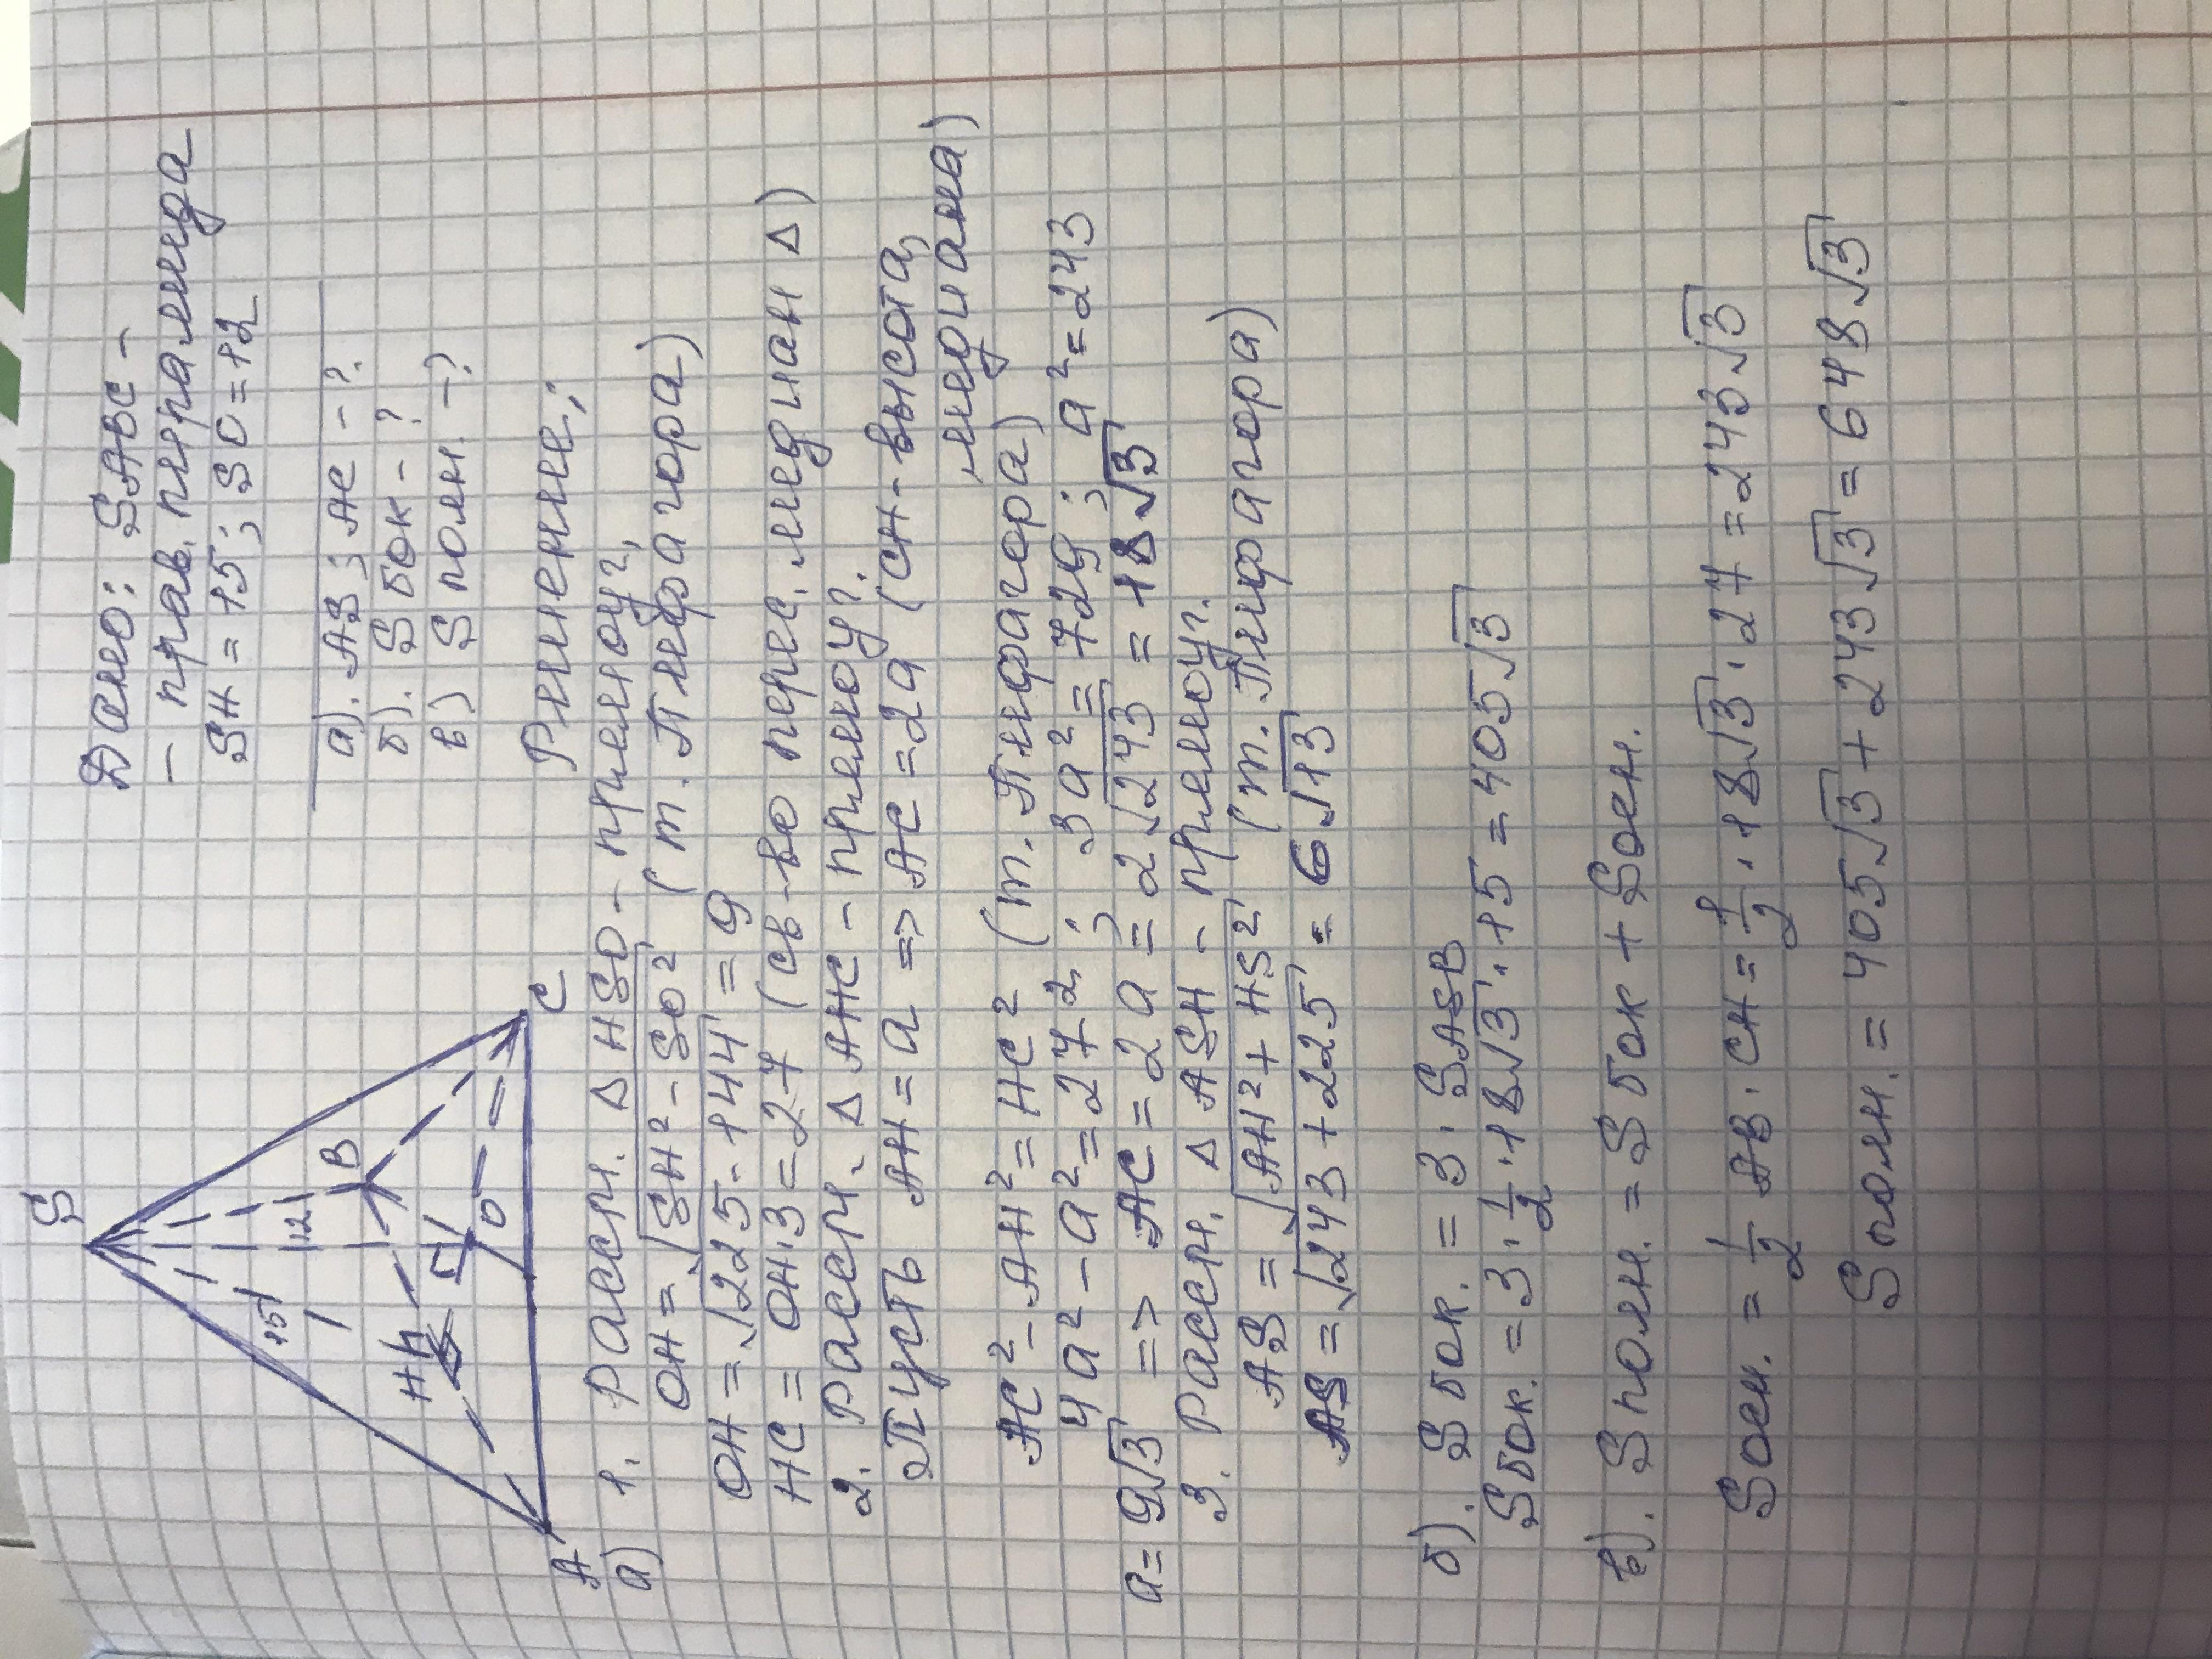 Дано: SABC -
- прав. пирамида
SH = 15; SO = 12
а). AS; AC - ?
б). S бок - ?
в) S полн. - ?
S
15
12
H
h
B
O
A
C
Решение:
а) 1. Рассм. Δ HSO - прямоуг,
OH = √SH² - SO² (т. Пифагора)
OH = √225 - 144 = 9
HC = OH·3 = 27 (св-во перес. медиан Δ)
2. Рассм. Δ AHC - прямоуг.
Пусть AH = a => AC = 2a (CH - высота,
медиана)
AC² - AH² = HC² (т. Пифагора)
4a² - a² = 27²; 3a² = 729; a² = 243
a = 9√3 => AC = 2a = 2√243 = 18√3
3. Рассм. Δ ASH - прямоуг.
AS = √AH² + HS² (т. Пифагора)
AS = √243 + 225 = 6√13
б). S бок. = 3 · SASB
S бок. = 3 · 1/2 · 18√3 · 15 = 405√3
в). S полн. = S бок + S осн.
S осн. = 1/2 AB · CH = 1/2 · 18√3 · 27 = 243√3
S полн. = 405√3 + 243√3 = 648√3